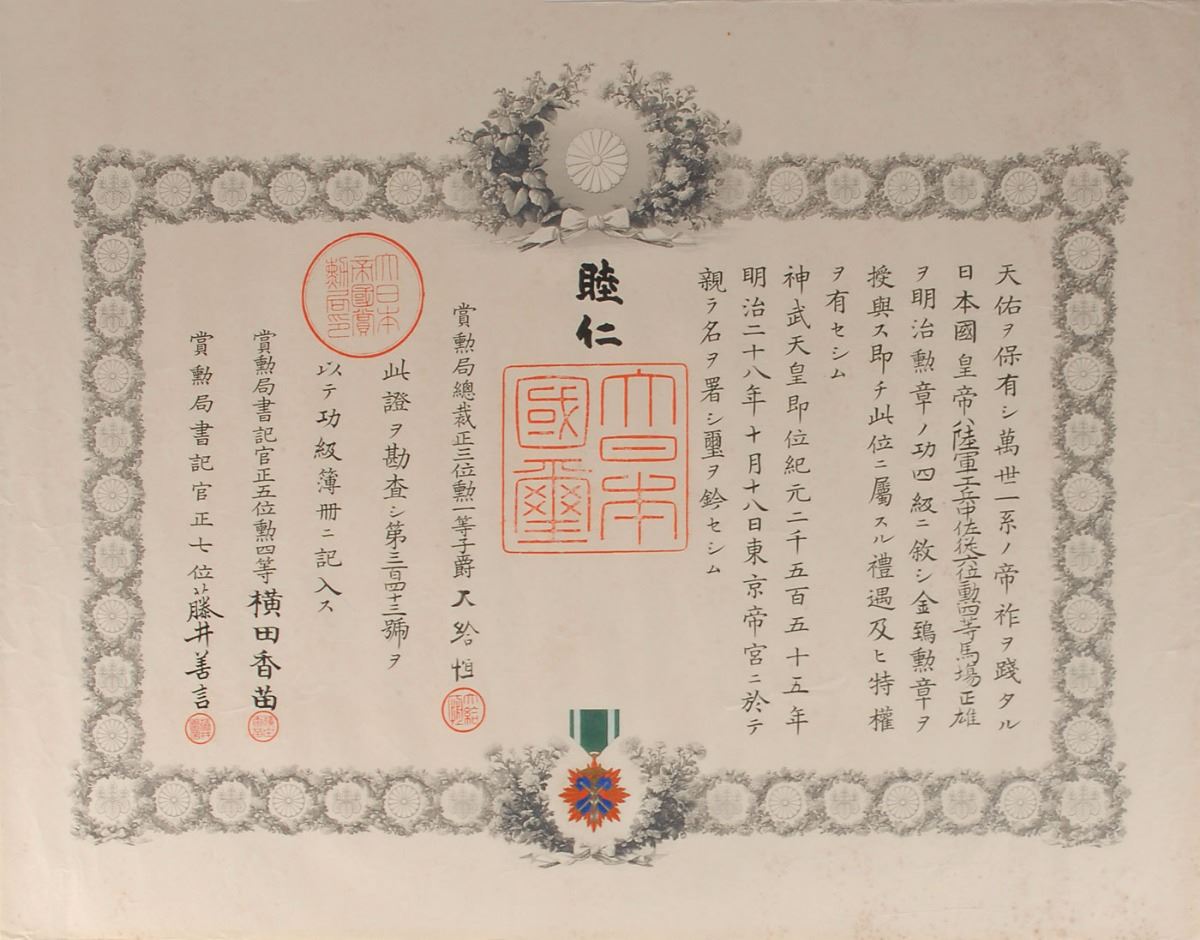 天佑ヲ保有シ萬世一系ノ帝祚ヲ踐タル
日本國皇帝ハ陸軍工兵中佐従六位勲四等馬場正雄
ヲ明治勲章ノ功四級ニ敘シ金鵄勲章ヲ
授與ス即チ此位ニ屬スル禮遇及ヒ特權
ヲ有セシム
神武天皇即位紀元二千五百五十五年
明治二十八年十月十八日東京帝宮ニ於テ
親ラ名ヲ署シ璽ヲ鈐セシム
睦仁
大日本
國璽
賞勲局總裁正三位勲一等子爵大給恒
大給
此證ヲ勘査シ第三百四十三號ヲ
以テ功級簿冊ニ記入ス
大日本
帝國賞
勲局印
賞勲局書記官正五位勲四等横田香苗
賞勲局書記官正七位藤井善言